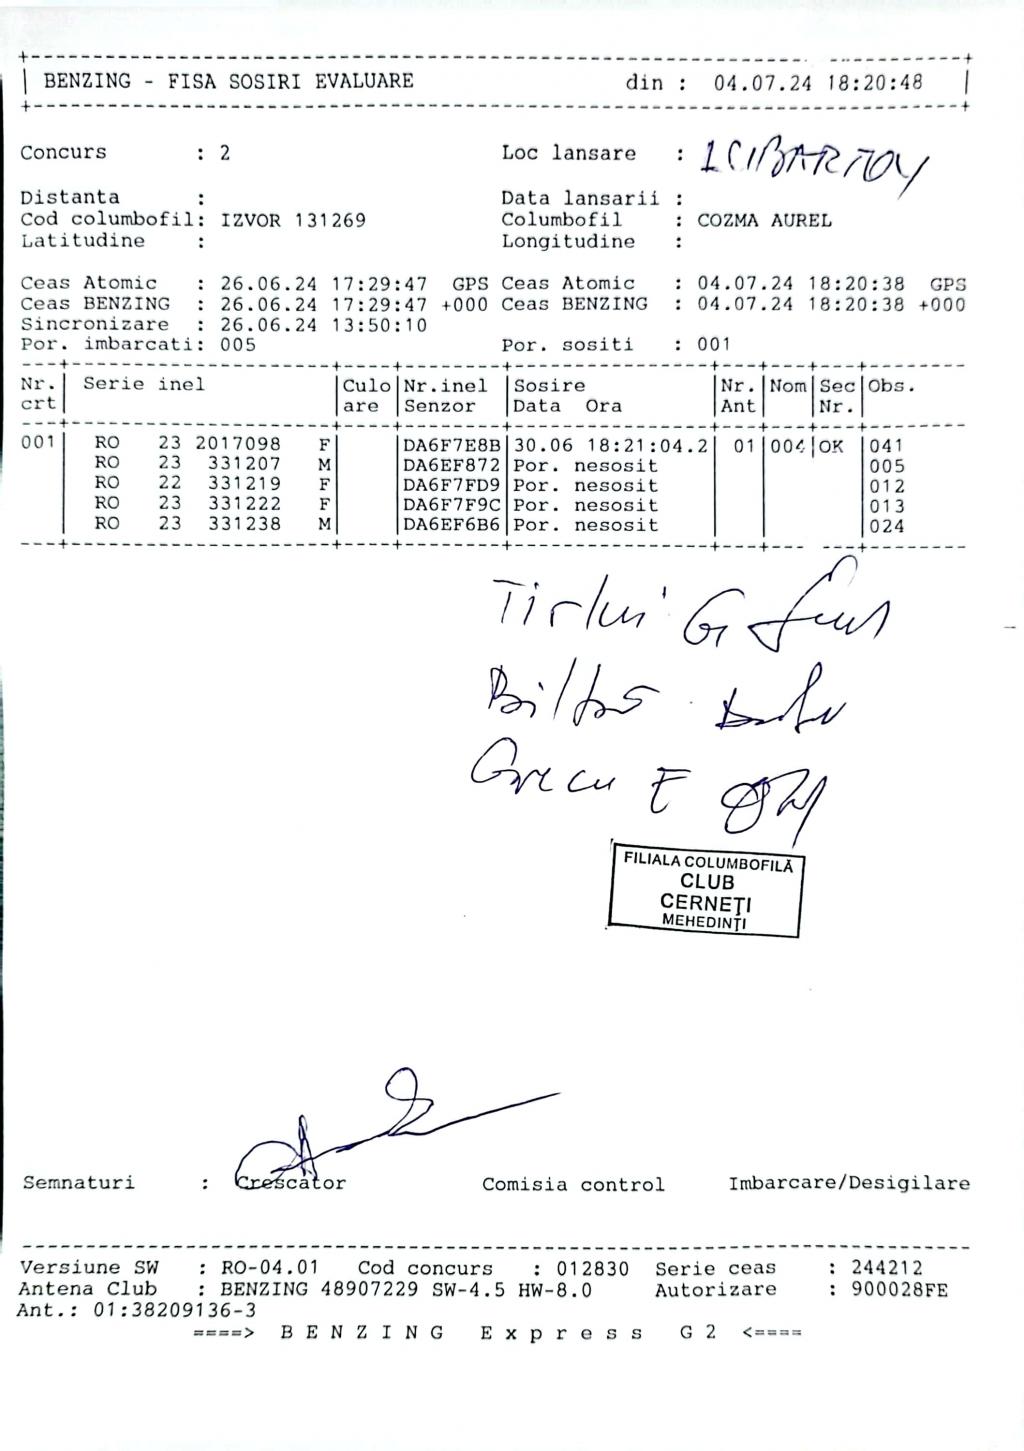 BENZING - FISA SOSIRI EVALUARE din : 04.07.24 18:20:48
Concurs : 2 Loc lansare :
Distanta : Data lansarii :
Cod columbofil: IZVOR 131269 Columbofil : COZMA AUREL
Latitudine : Longitudine :
Ceas Atomic : 26.06.24 17:29:47 GPS Ceas Atomic : 04.07.24 18:20:38 GPS
Ceas BENZING : 26.06.24 17:29:47 +000 Ceas BENZING : 04.07.24 18:20:38 +000
Sincronizare : 26.06.24 13:50:10
Por. imbarcati: 005 Por. sositi : 001
Nr. Serie inel Culo Nr.inel Sosire Nr. Nom Sec Obs.
crt are Senzor Data Ora Ant Nr.
001 RO 23 2017098 F DA6F7E8B 30.06 18:21:04.2 01 004 OK 041
RO 23 331207 M DA6EF872 Por. nesosit 005
RO 22 331219 F DA6F7FD9 Por. nesosit 012
RO 23 331222 F DA6F7F9C Por. nesosit 013
RO 23 331238 M DA6EF6B6 Por. nesosit 024
Grecu E
FILIALA COLUMBOFILĂ
CLUB
CERNEȚI
MEHEDINȚI
Semnaturi : Crescator Comisia control Imbarcare/Desigilare
Versiune SW : RO-04.01 Cod concurs : 012830 Serie ceas : 244212
Antena Club : BENZING 48907229 SW-4.5 HW-8.0 Autorizare : 900028FE
Ant.: 01:38209136-3
====> B E N Z I N G E x p r e s s G 2 <====